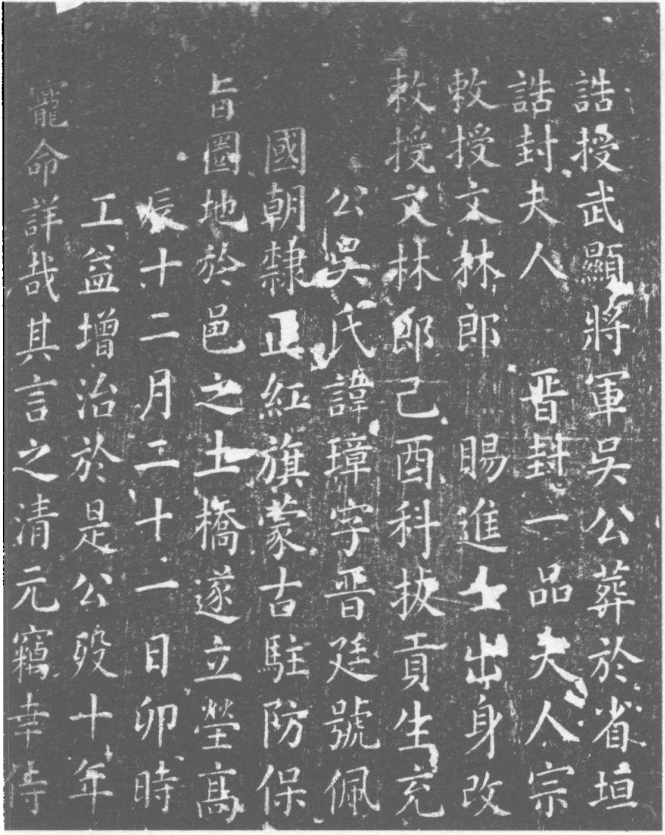 誥授武顯將軍吳公葬於省垣
誥封夫人 晋封一品夫人宗
敕授文林郎 賜進士出身改
敕授文林郎己酉科拔貢生充
公吳氏諱璋字晋廷號佩
國朝隸正紅旗蒙古駐防保
旨圈地於邑之土橋遂立塋高
辰十二月二十一日卯時
工益增治於是公歿十年
寵命詳哉其言之清元竊幸侍